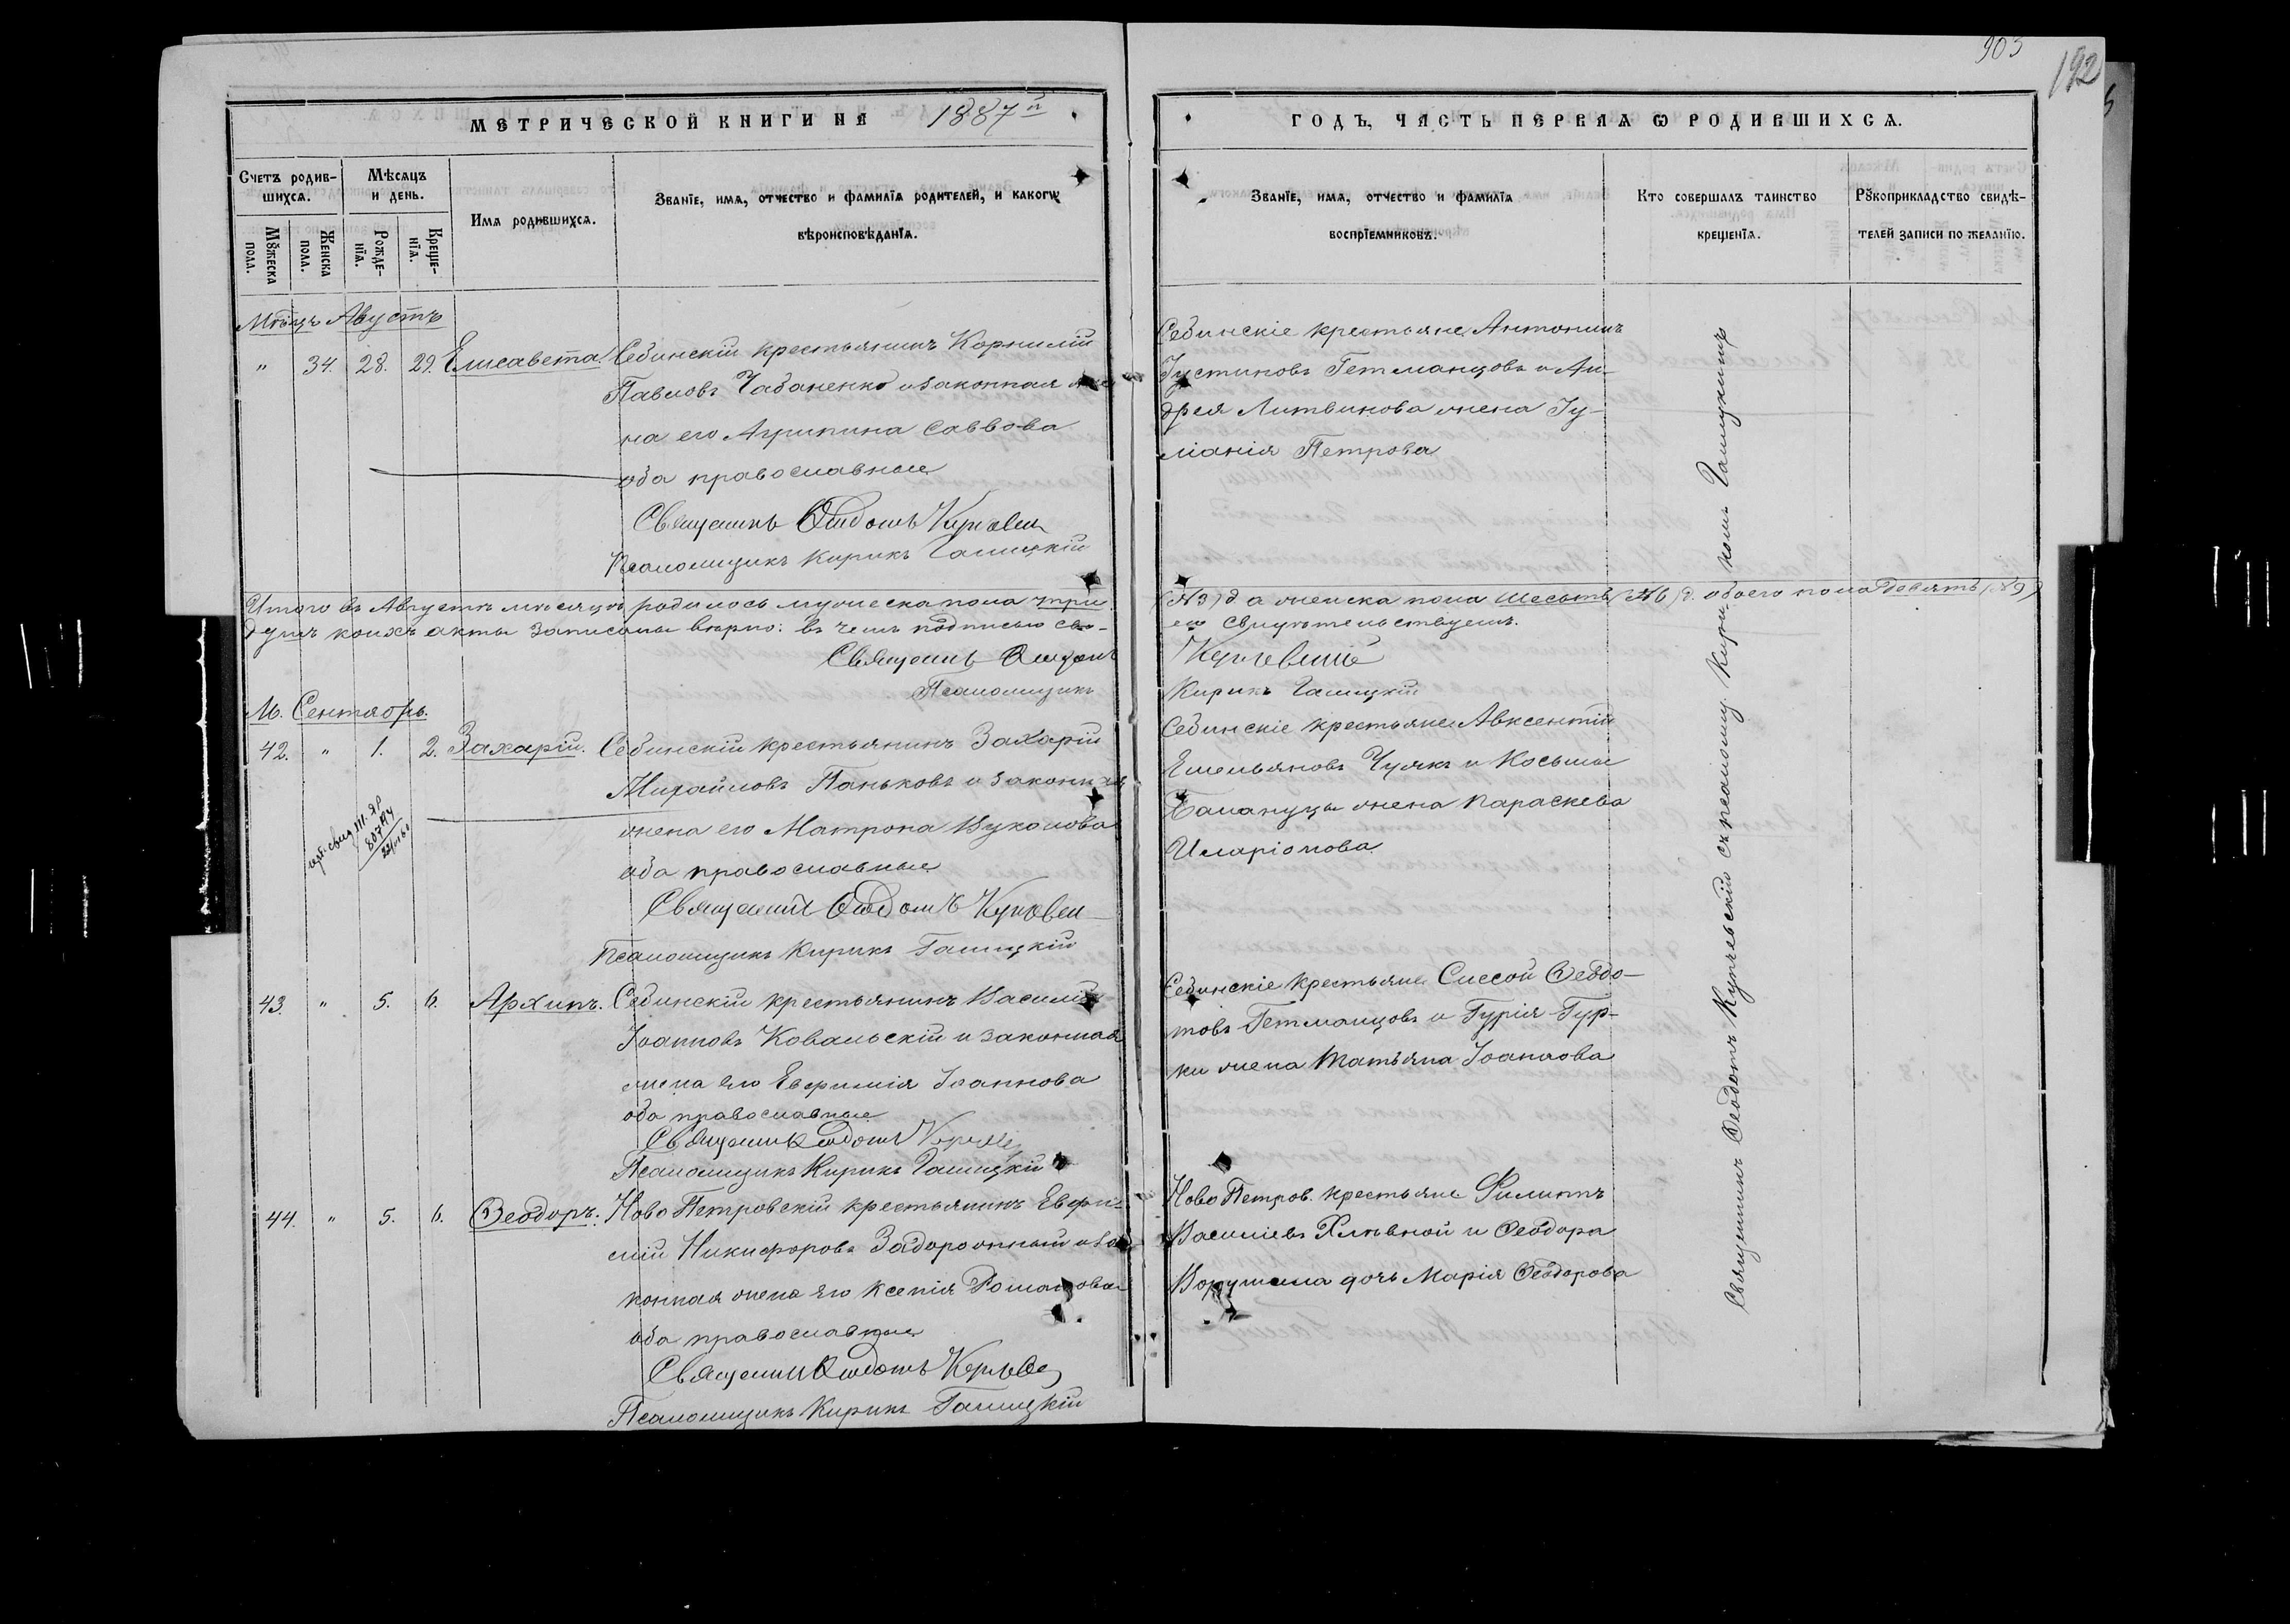 903
192
МЕТРИЧЕСКОЙ КНИГИ НА 1887й
ГОДЪ, ЧАСТЬ ПЕРВАЯ Ѡ РОДИВШИХСѦ.
Счетъ родив-
шихсѧ.
Мꙋжеска
пола.
Женска
пола.
Мѣсѧцъ
и день.
Рожде-
нїѧ.
Креще-
нїѧ.
Имѧ родившихсѧ.
Званїе, имѧ, отчество и фамилїѧ родителей, и какогѡ
вѣроисповѣданїѧ.
Званїе, имѧ, отчество и фамилїѧ
воспрїемниковъ.
Кто совершалъ таинство
крещенїѧ.
Рꙋкоприкладство свидѣ-
телей записи по желанїю.
Мѣсяцъ Августъ
" 34. 28. 29. Елисавета. Себинскій крестьянинъ Корнилій
Павловъ Чабаненко и законная же
на его Агрипина Саввова
оба православные
Священникъ Ѳеодотъ
Псаломщикъ Кирикъ Галицкій
Себинскіе крестьяне Антонинъ
Іустиновъ Гетманцовъ и Ан-
дрея Литвинова жена Іу-
ліанія Петрова
Итого въ Августѣ мѣсяцѣ родилось мужеска пола три (№3) д. а женска пола шесть (№6) д. обоего пола девять (№9)
душъ коихъ акты записаны вѣрно: въ чемъ подписью сво- ею свидѣтельствуемъ.
Священникъ Ѳеодотъ
Псаломщикъ Кирикъ Галицкій
М. Сентябрь.
42. " 1. 2. Захарій. Себинскій крестьянинъ Захарій
Михайловъ Паньковъ и законная
жена его Матрона Вуколова
оба православные
Священникъ Ѳеодотъ
Псаломщикъ Кирикъ Галицкій
Себинскіе крестьяне Авксентій
Емельяновъ Чумакъ и Косьмы
Балануцы жена Параскева
Иларіонова
43. " 5. 6. Архипъ. Себинскій крестьянинъ Василій
Іоанновъ Ковальскій и законная
жена его Евфимія Іоаннова
оба православные
Священникъ Ѳеодотъ
Псаломщикъ Кирикъ Галицкій
Себинскіе крестьяне Сисой Ѳеодо-
товъ Гетманцовъ и Гурія Гур-
ки жена Татьяна Іоаннова
44. " 5. 6. Ѳеодоръ. Ново Петровскій крестьянинъ Евфи-
мій Никифоровъ Задорожный и за
конная жена его Ксенія Романова
оба православные
Священникъ Ѳеодотъ
Псаломщикъ Кирикъ Галицкій
Ново Петров. крестьяне Филиппъ
Василіевъ Хлѣвной и Ѳеодора
дочь Марія Ѳеодорова
Священникъ Ѳеодотъ Курлевскій съ псаломщ. Кири- комъ Галицкимъ